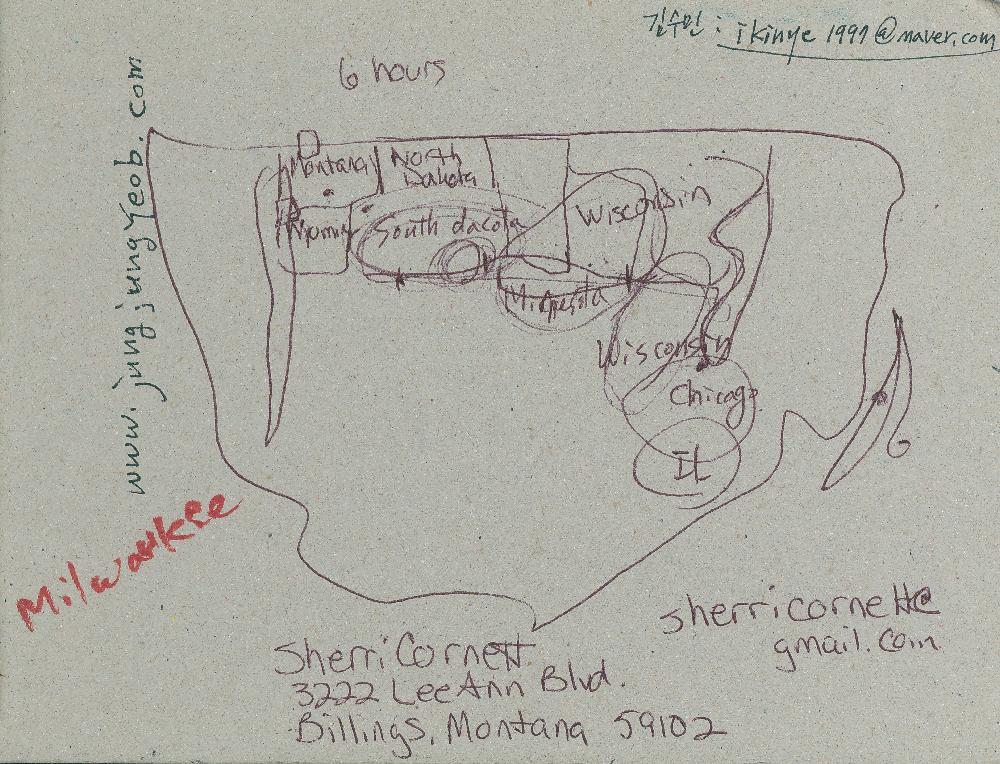 김수민 : ikinye 1997@naver.com
6 hours
www.jungjungyeob.com
Montana
North
Dakota
South dacota
Wisconsin
Wisconsin
Chicago
IL
Milwaukee
sherricornett@
gmail.com
Sherri Cornett
3222 LeeAnn Blvd.
Billings, Montana 59102